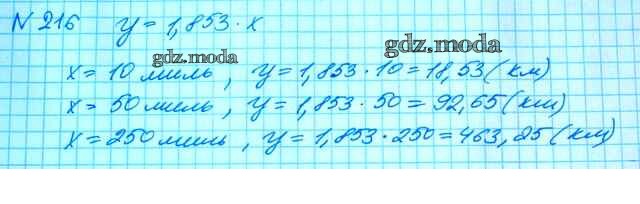 № 216 y = 1,853 · x
gdz.moda
gdz.moda
x = 10 миль, y = 1,853 · 10 = 18,53 (км)
x = 50 миль, y = 1,853 · 50 = 92,65 (км)
x = 250 миль, y = 1,853 · 250 = 463,25 (км)